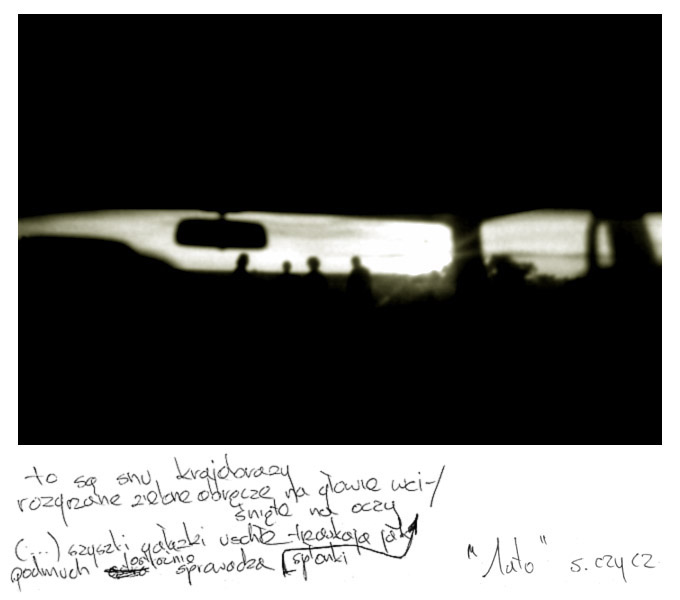 to są snu krajobrazy
rozgrzane zielone obręcze na głowie wci-/
śnięte na oczy
(...) szyszki gałązki uschłe trzaskają jak
podmuch sprawadza spłonki
"Lato" s. czycz